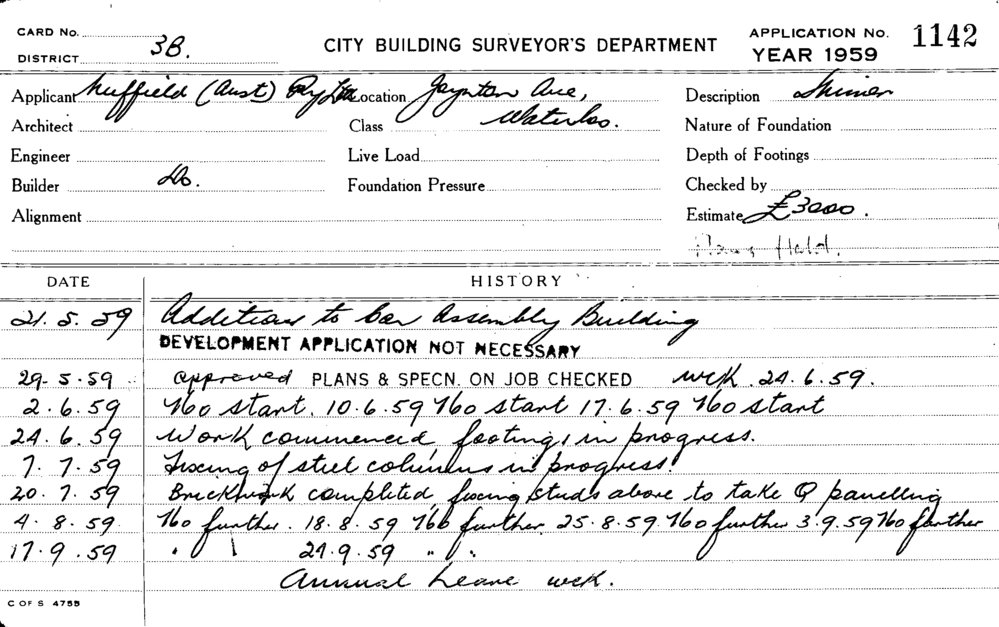 CARD No.
DISTRICT 3B.
CITY BUILDING SURVEYOR'S DEPARTMENT
APPLICATION No. 1142
YEAR 1959
Applicant Nuffield (Aust) Pty Ltd Location Joynton Ave, Description
Architect Class Waterloo. Nature of Foundation
Engineer Live Load Depth of Footings
Builder Do. Foundation Pressure Checked by
Alignment Estimate £3000.
Held.
DATE HISTORY
21.5.59 Additions to Car Assembly Building
DEVELOPMENT APPLICATION NOT NECESSARY
29-5-59 approved PLANS & SPECN. ON JOB CHECKED wck. 24.6.59.
2.6.59 No start. 10.6.59 No start 17.6.59 No start
24.6.59 Work commenced, footings in progress.
7.7.59 Fixing of steel columns in progress.
20.7.59 Brickwork completed, fixing studs above to take panelling
4.8.59 No further. 18.8.59 No further 25.8.59 No further 3.9.59 No further
17.9.59 " " 24.9.59 " "
Annual Leave wck.
C OF S 4755